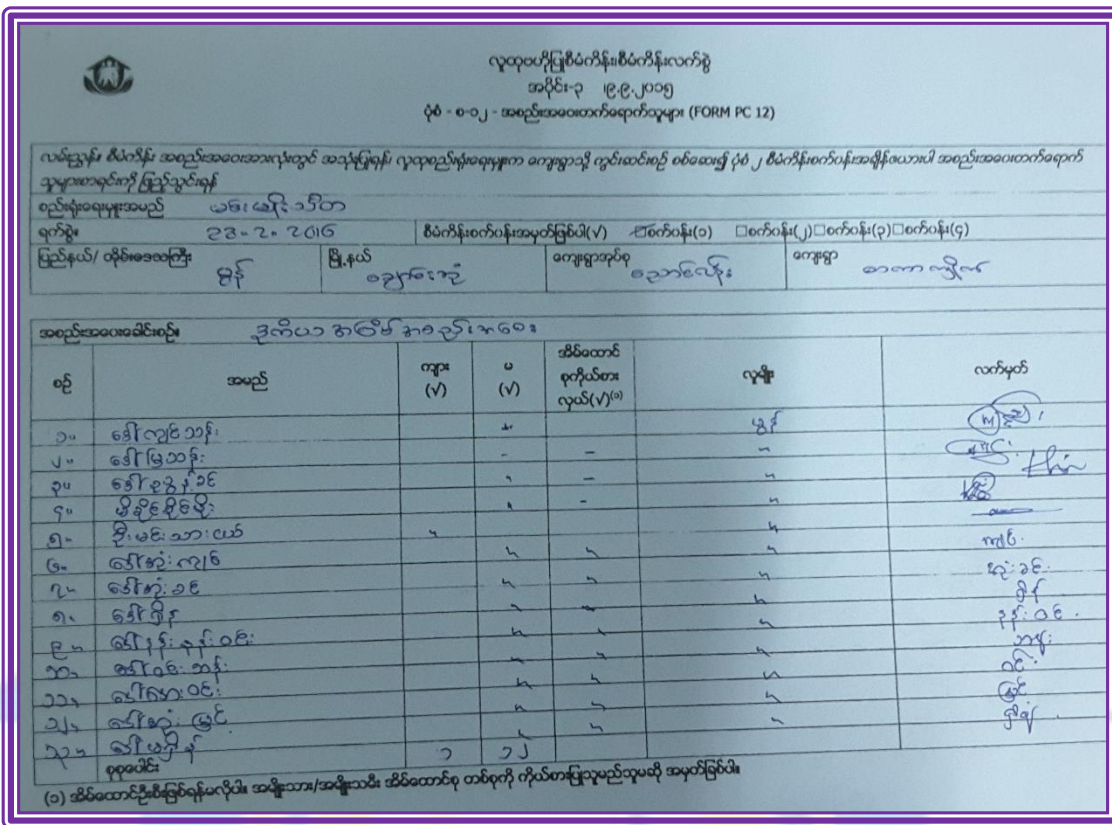 လူထုဗဟိုပြုစီမံကိန်း၊စီမံကိန်းလက်စွဲ
အပိုင်း-၃ ၊၉.၉.၂၀၁၅
ပုံစံ - စ-၁၂ - အစည်းအဝေးတက်ရောက်သူများ (FORM PC 12)
လမ်းညွှန်။ စီမံကိန်း အစည်းအဝေးအားလုံးတွင် အသုံးပြုရန်၊ လူထုစည်းရုံးရေးမှူးက ကျေးရွာသို့ ကွင်းဆင်းစဉ် စစ်ဆေး၍ ပုံစံ ၂ စီမံကိန်းစက်ပန်းအချိန်ဇယားပါ အစည်းအဝေးတက်ရောက်
သူများစာရင်းကို ဖြည့်သွင်းရန်
စည်းရုံးရေးမှူးအမည် မင်းမျိုးသီတာ
ရက်စွဲ။ 23-2-2016 စီမံကိန်းစက်ပန်းအမှတ်ခြစ်ပါ(√) စက်ပန်း(၁) □စက်ပန်း(၂)□စက်ပန်း(၃)□စက်ပန်း(၄)
ပြည်နယ်/ တိုင်းဒေသကြီး မွန် မြို့နယ် ချောင်းဆုံ ကျေးရွာအုပ်စု ညောင်လန်း ကျေးရွာ
အစည်းအဝေးခေါင်းစဉ်။ ဒုတိယအကြိမ်အစည်းအဝေး
စဉ် အမည် ကျား (√) မ (√) အိမ်ထောင်စုကိုယ်စားလှယ်(√)⁽¹⁾ လူမျိုး လက်မှတ်
၁။ ဒေါ်ကျင်သန်း မွန်
၂။ ဒေါ်မြသန်း
၃။ Khin
၄။
၅။ ဦးမင်းသားငယ်
၆။ ဒေါ်အုံးကျင် ကျင်
၇။ ဒေါ်အုံးခင် အုံးခင်
၈။ ဒေါ်ရှိန် ရှိန်
၉။ ဒေါ်နန်းနန်းဝင်း နန်းဝင်
၁၀။ ဒေါ်ဝင်း
၁၁။ ဒေါ်အေးဝင်း ဝင်း
၁၂။ ဒေါ်အုံးမြင့် မြင့်
၁၃။
စုစုပေါင်း ၁ ၁၂
(၁) အိမ်ထောင်ဦးစီးဖြစ်ရန်မလိုပါ။ အမျိုးသား/အမျိုးသမီး အိမ်ထောင်စု တစ်စုကို ကိုယ်စားပြုသူမည်သူမဆို အမှတ်ခြစ်ပါ။